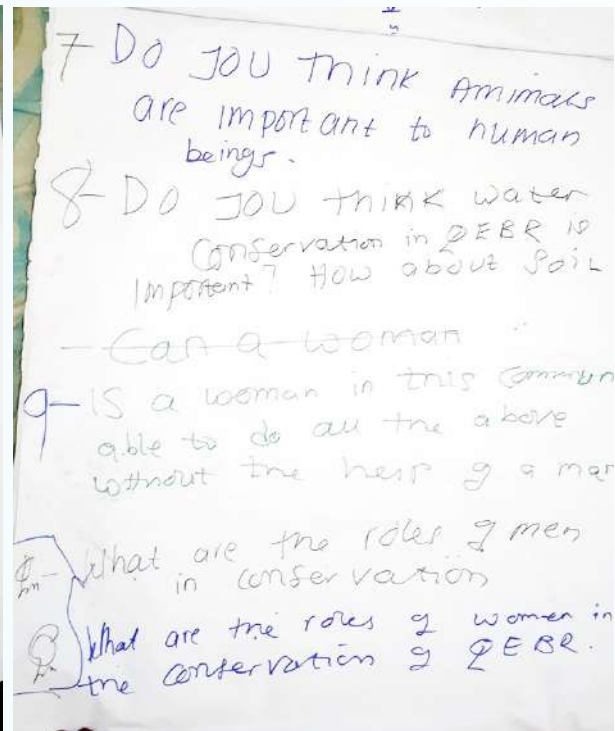 7- Do you think Animals
are important to human
beings.
8- Do you think water
Conservation in QEBR is
Important? How about Soil
- Can a woman
9- IS a woman in this
able to do all the above
without the help of a man
Qn- What are the roles of men
in conservation
Qn What are the roles of women in
the conservation of QEBR.